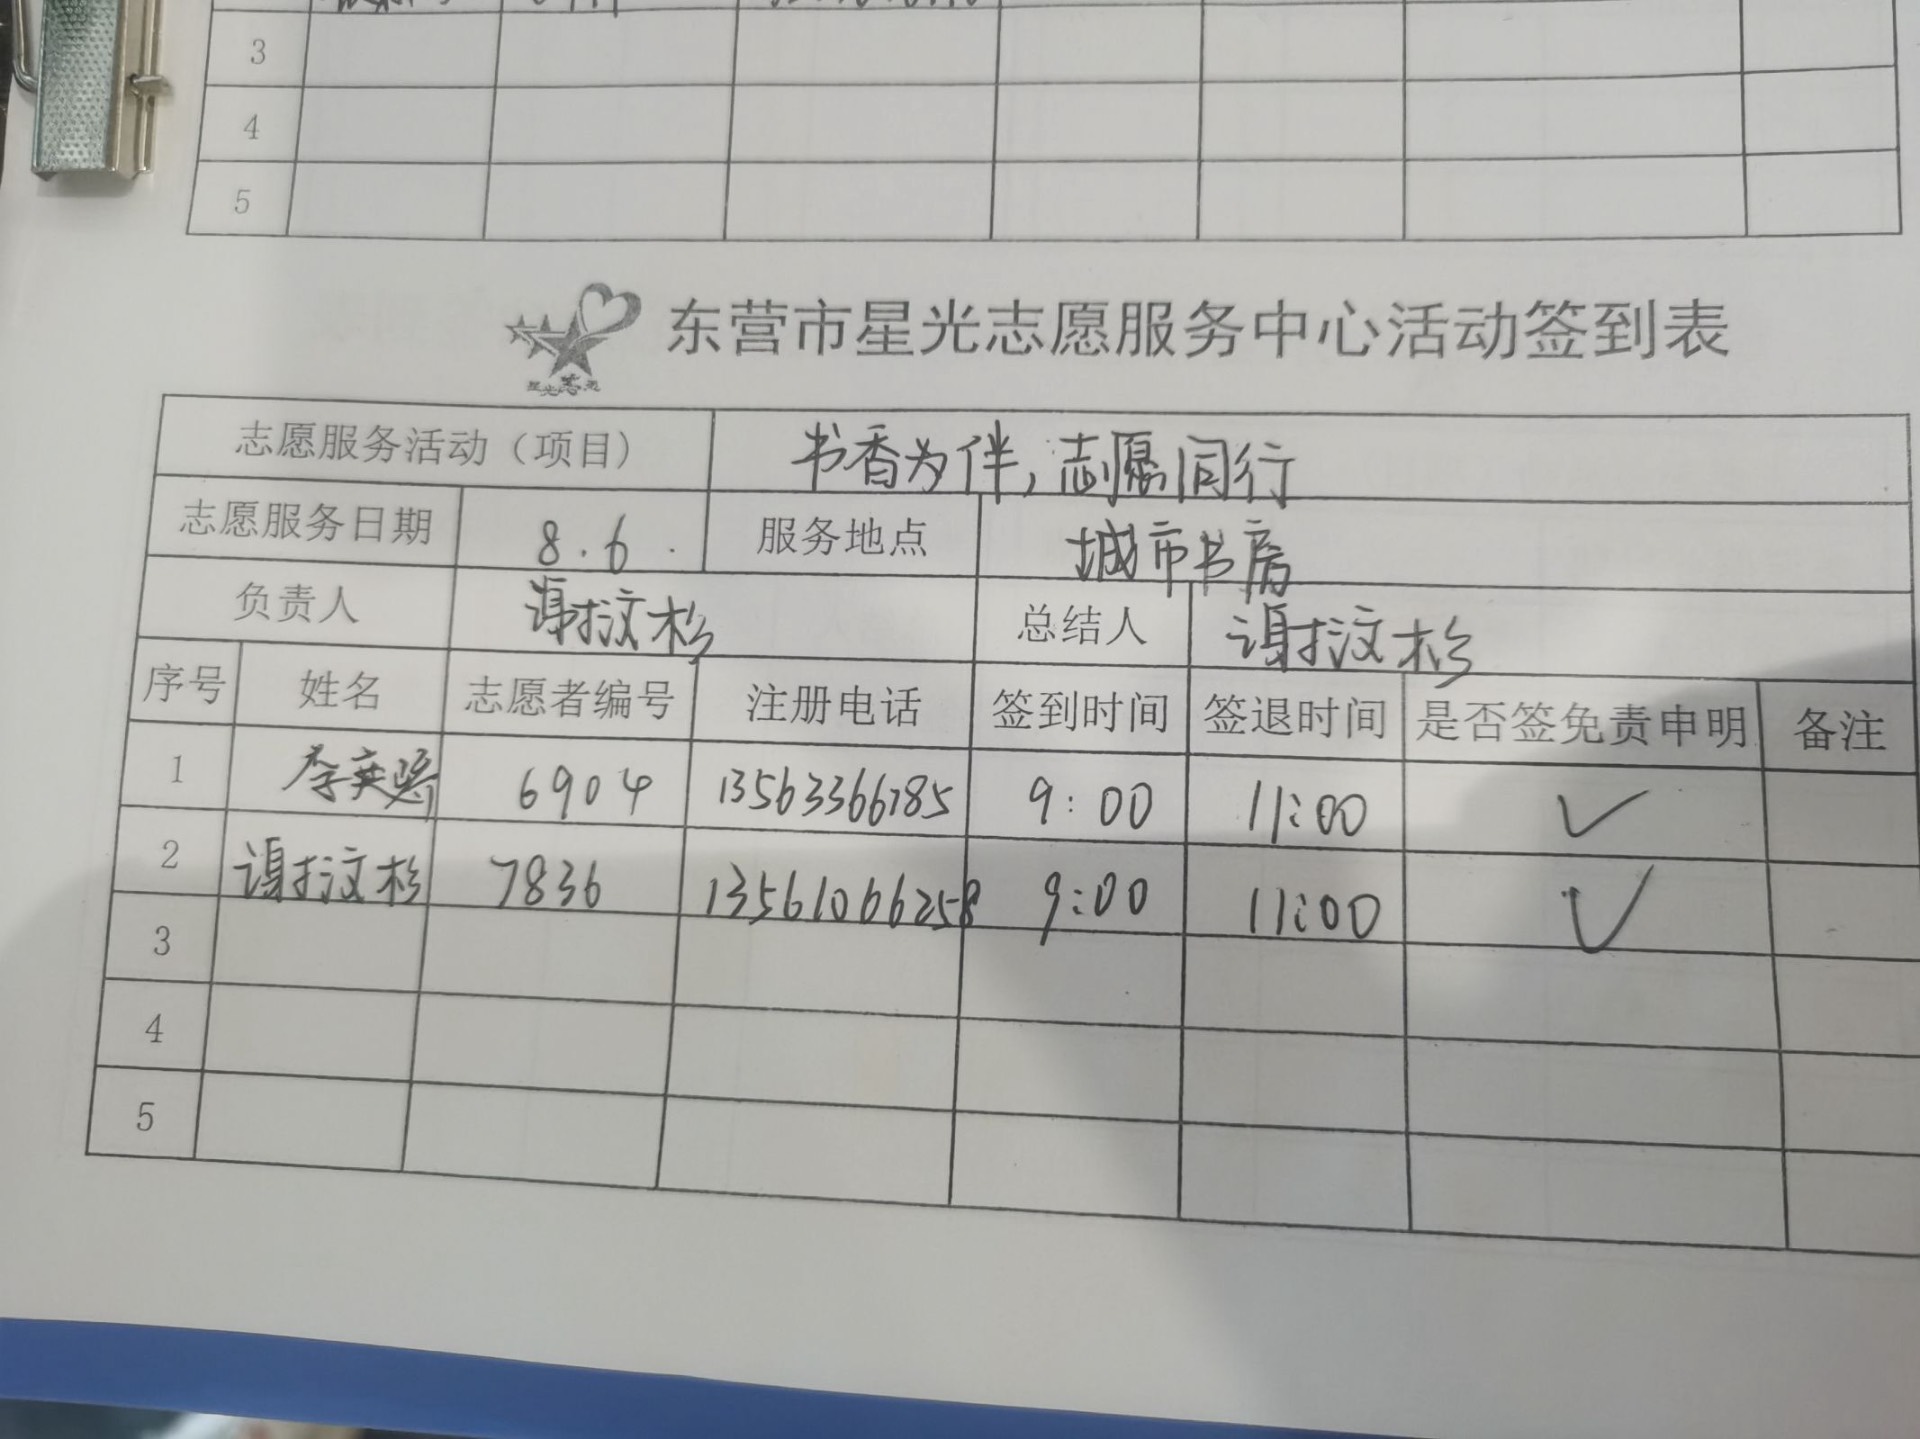 3
4
5
东营市星光志愿服务中心活动签到表
志愿服务活动（项目） 书香为伴,志愿同行
志愿服务日期 8.6. 服务地点 城市书房
负责人 谢汶杉 总结人 谢汶杉
序号 姓名 志愿者编号 注册电话 签到时间 签退时间 是否签免责申明 备注
1 李英 6904 13563366785 9:00 11:00 ✓
2 谢汶杉 7836 13561066258 9:00 11:00 ✓
3
4
5